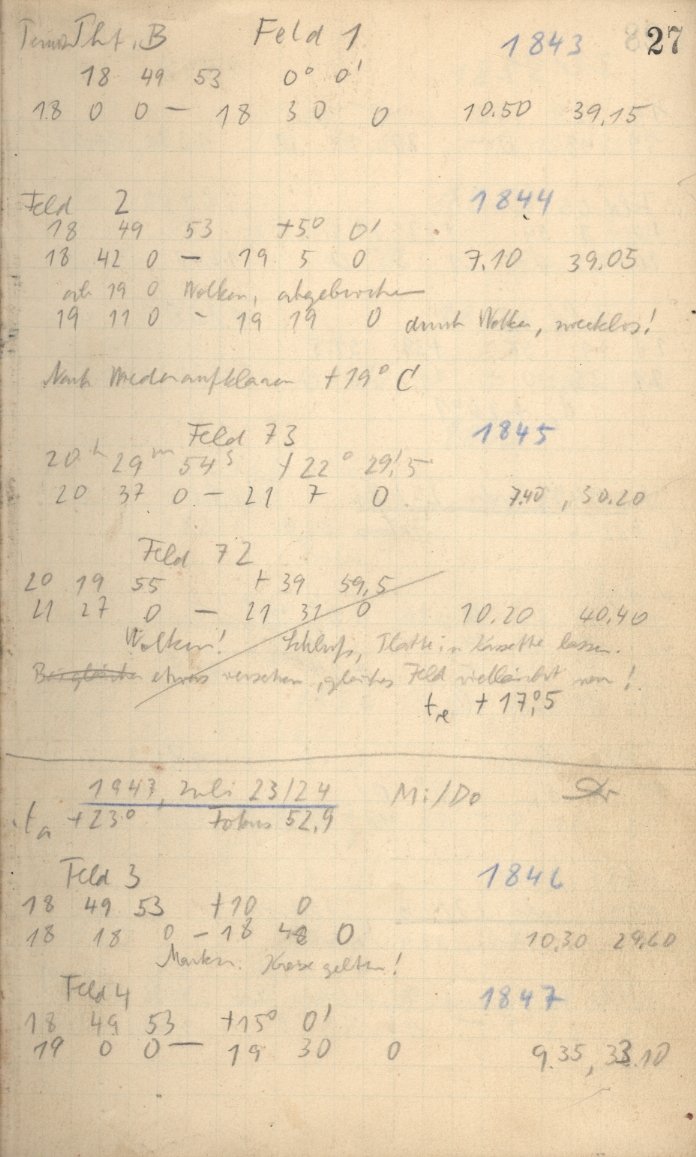 Tht, B Feld 1 1843 27
18 49 53 0° 0'
18 0 0 — 18 30 0 10.50 39.15
Feld 2 1844
18 49 53 +5° 0'
18 42 0 — 19 5 0 7.10 39.05
ab 19 0 Wolken, abgebrochen
19 11 0 - 19 19 0 durch Wolken, zwecklos!
Nach Wiederaufklaren +19° C
Feld 73 1845
20h 29m 54s +22° 29,'5
20 37 0 — 21 7 0 7.40, 30.20
Feld 72
20 19 55 +39 59,5
21 27 0 — 21 31 0 10.20 40.40
Wolken! Schluß, Platte in Kassette lassen.
etwas versehen, gleiches Feld vielleicht neu!
te +17,°5
1947, Juli 23/24 Mi/Do
ta +23° Fokus 52,9
Feld 3 1846
18 49 53 +10 0
18 18 0 — 18 48 0 10.30 29.60
Feld 4 1847
18 49 53 +15° 0'
19 0 0 — 19 30 0 9.35, 33.10